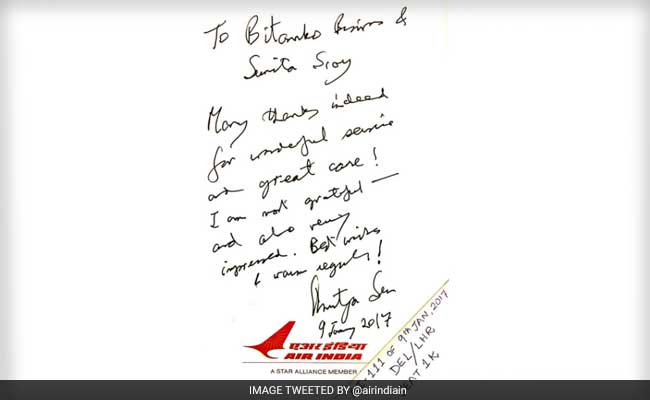 To Bitanko Biswas &
Sunita Sroy
Many thanks indeed
for wonderful service
and great care!
I am most grateful —
and also very
impressed. Best wishes
& warm regards!
Amartya Sen
9 January 2017
एअर इंडिया
AIR INDIA
A STAR ALLIANCE MEMBER
111 OF 9TH JAN, 2017
DEL/LHR
SEAT 1K
IMAGE TWEETED BY @airindiain